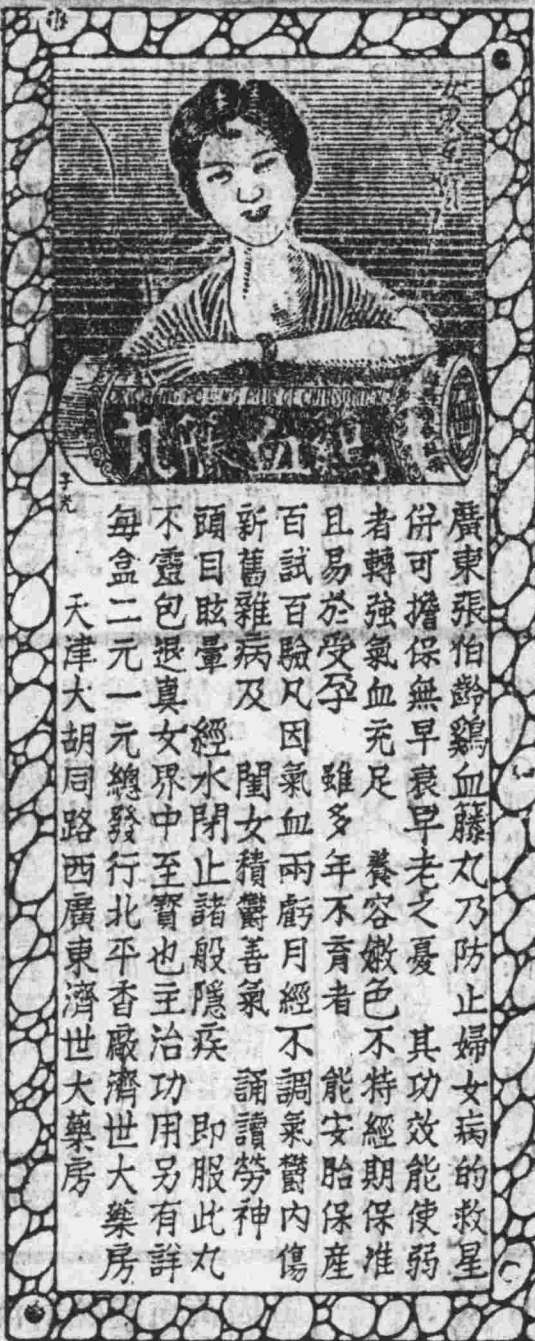 丸籐血鷄
子光
廣東張伯齡鷄血籐丸乃防止婦女病的救星
併可擔保無早衰早老之憂 其功效能使弱
者轉強氣血充足 養容嫩色不特經期保准
且易於受孕 雖多年不育者 能安胎保産
百試百驗凡因氣血兩虧月經不調氣欝内傷
新舊雜病及 閨女積欝善氣 誦讀勞神
頭目眩暈 經水閉止諸般隱疾 即服此丸
不靈包退真女界中至寳也主治功用另有詳
每盒二元一元總發行北平香廠濟世大藥房
天津大胡同路西廣東濟世大藥房